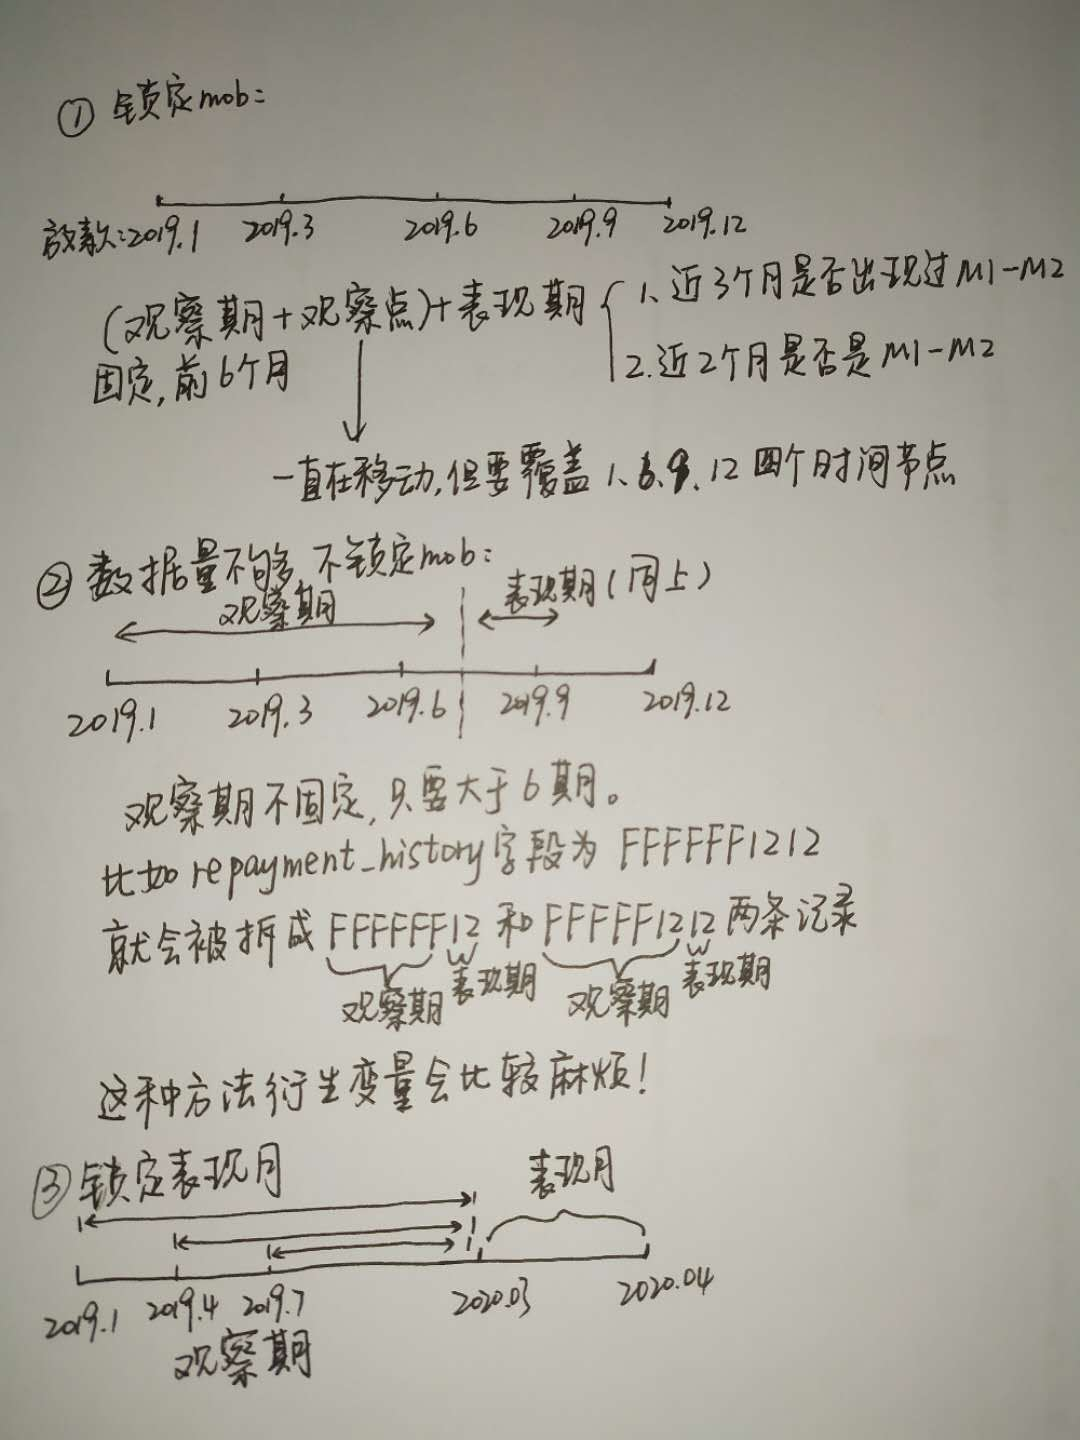 ① 锁定mob:
放款:2019.1 2019.3 2019.6 2019.9 2019.12
(观察期+观察点)+表现期 { 1、近3个月是否出现过M1-M2
固定,前6个月 2.近2个月是否是M1-M2
一直在移动,但要覆盖1、6、9、12四个时间节点
② 数据量不够多 不锁定mob:
观察期 表现期(同上)
2019.1 2019.3 2019.6 2019.9 2019.12
观察期不固定,只要大于6期。
比如repayment_history字段为 FFFFFF1212
就会被拆成FFFFFF12和FFFFFF1212两条记录
观察期 表现期 观察期 表现期
这种方法衍生变量会比较麻烦!
③ 锁定表现月 表现月
2019.1 2019.4 2019.7 2020.03 2020.04
观察期